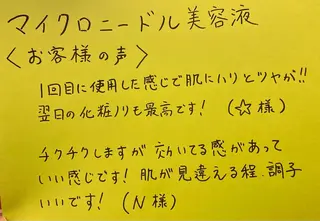 マイクロニードル美容液
〈お客様の声〉
1回目に使用した感じで肌にハリとツヤが!!
翌日の化粧ノリも最高です! (☆様)
チクチクしますが効いてる感があって
いい感じです!肌が見違える程、調子
いいです! (N様)